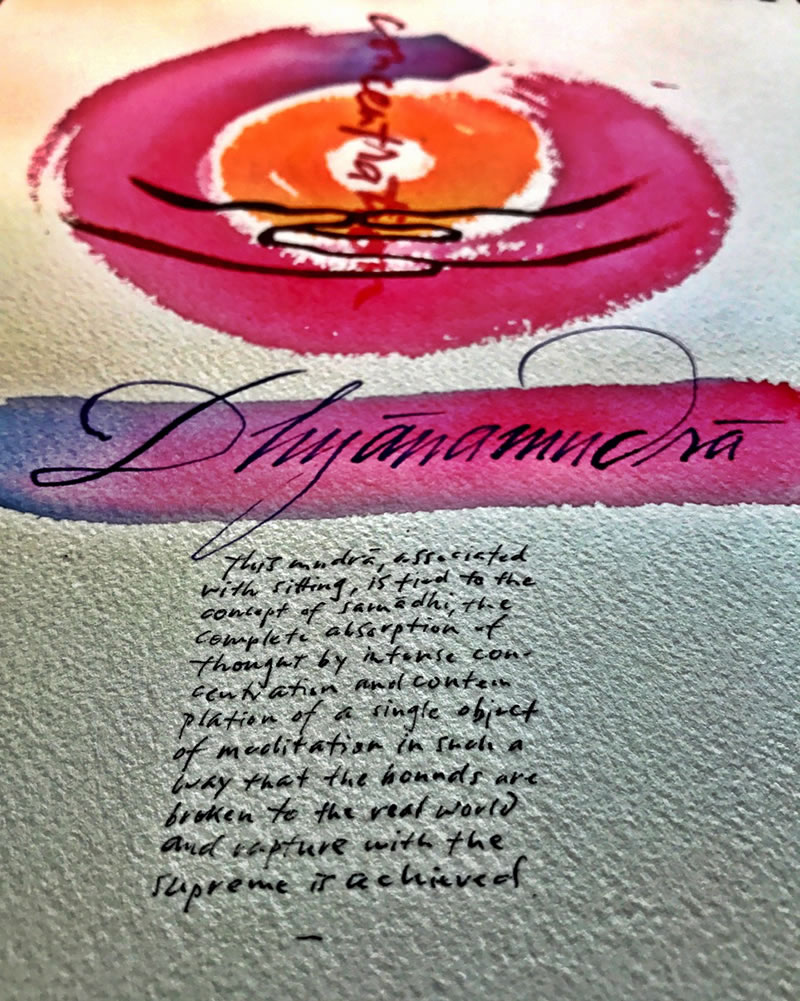 concentration
Dhyānamudrā
This mudrā, associated
with sitting, is tied to the
concept of samādhi, the
complete absorption of
thought by intense con-
centration and contem
plation of a single object
of meditation in such a
way that the bounds are
broken to the real world
and rapture with the
supreme is achieved.